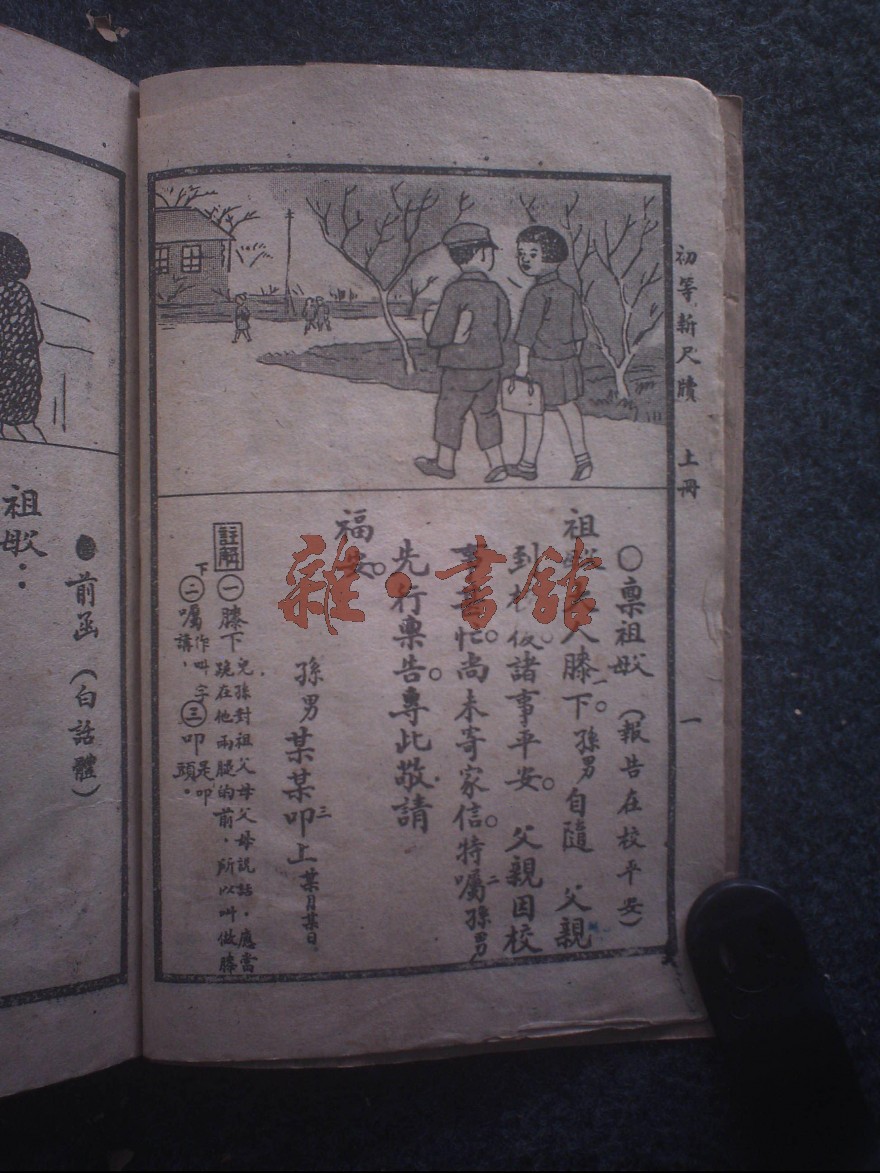 初等新尺牘 上冊 一
○稟祖母（報告在校平安）
祖母大人膝下一。孫男自隨 父親
到校後。諸事平安。 父親因校
事甚忙。尚未寄家信。特囑二孫男
先行稟告。專此敬請
福安。
孫男某某叩三上某月某日
註解㊀膝下兒孫對祖父母父母說話，應當跪在他兩腿的前，所以叫做膝
下㊁囑作叫字講，㊂叩是叩頭。
●前函（白話體）
祖母：
雜·書館